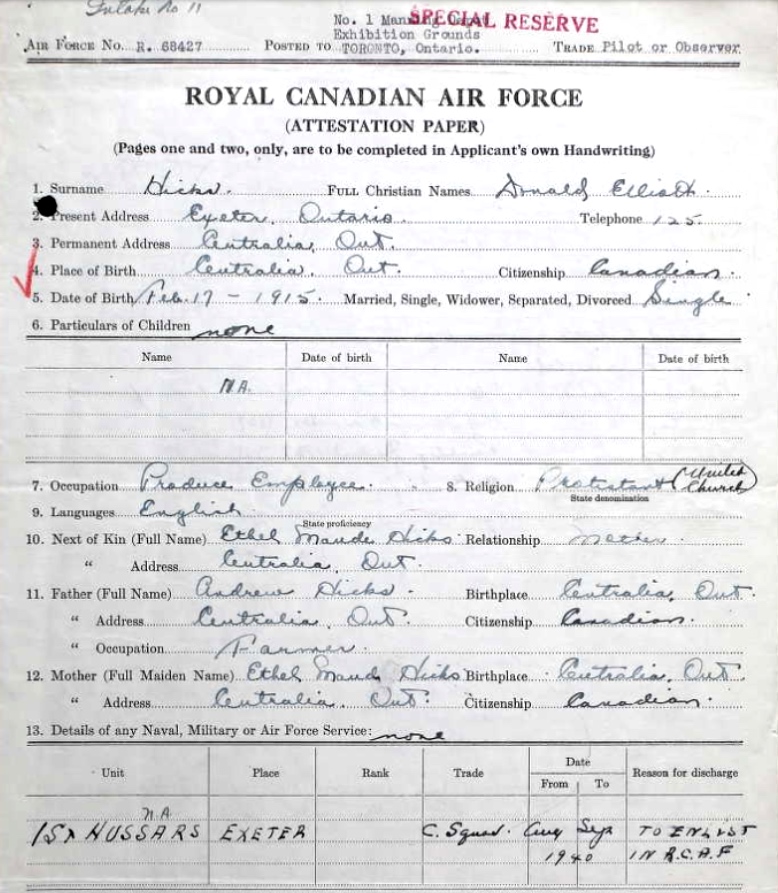 No 11
No. 1 Manning Depot SPECIAL RESERVE
Exhibition Grounds
AIR FORCE No. R. 68427 POSTED TO TORONTO, Ontario. TRADE Pilot or Observer
ROYAL CANADIAN AIR FORCE
(ATTESTATION PAPER)
(Pages one and two, only, are to be completed in Applicant's own Handwriting)
1. Surname Hicks. FULL Christian Names Donald Elliott.
2. Present Address Exeter, Ontario. Telephone 125.
3. Permanent Address Centralia, Ont.
4. Place of Birth Centralia, Ont. Citizenship Canadian.
5. Date of Birth Feb. 17 - 1915. Married, Single, Widower, Separated, Divorced Single
6. Particulars of Children none
Name Date of birth Name Date of birth
N.A.
7. Occupation Produce Employee. 8. Religion Protestant (United Church)
State denomination
9. Languages English
State proficiency
10. Next of Kin (Full Name) Ethel Maude Hicks Relationship Mother.
" Address Centralia, Ont.
11. Father (Full Name) Andrew Hicks. Birthplace Centralia, Ont.
" Address Centralia, Ont. Citizenship Canadian.
" Occupation Farmer.
12. Mother (Full Maiden Name) Ethel Maude Hicks Birthplace Centralia, Ont.
" Address Centralia, Ont. Citizenship Canadian.
13. Details of any Naval, Military or Air Force Service: none
Unit Place Rank Trade Date Reason for discharge
From To
N.A.
1st HUSSARS EXETER C. Squad. Aug Sep TO ENLIST
1940 IN R.C.A.F